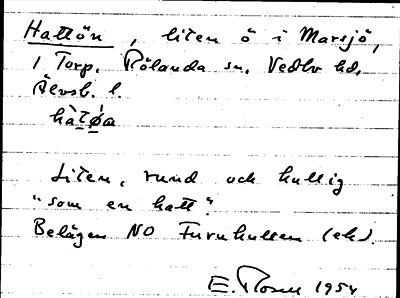 Hattön, liten ö i Marsjö,
1 Torp. Rölanda sn. Vedbo hd.
Älvsb. l.
hàtø̀a
Liten, rund och kullig
"som en hatt".
Belägen NO Furuhulten (ek).
E. Rosell 1954